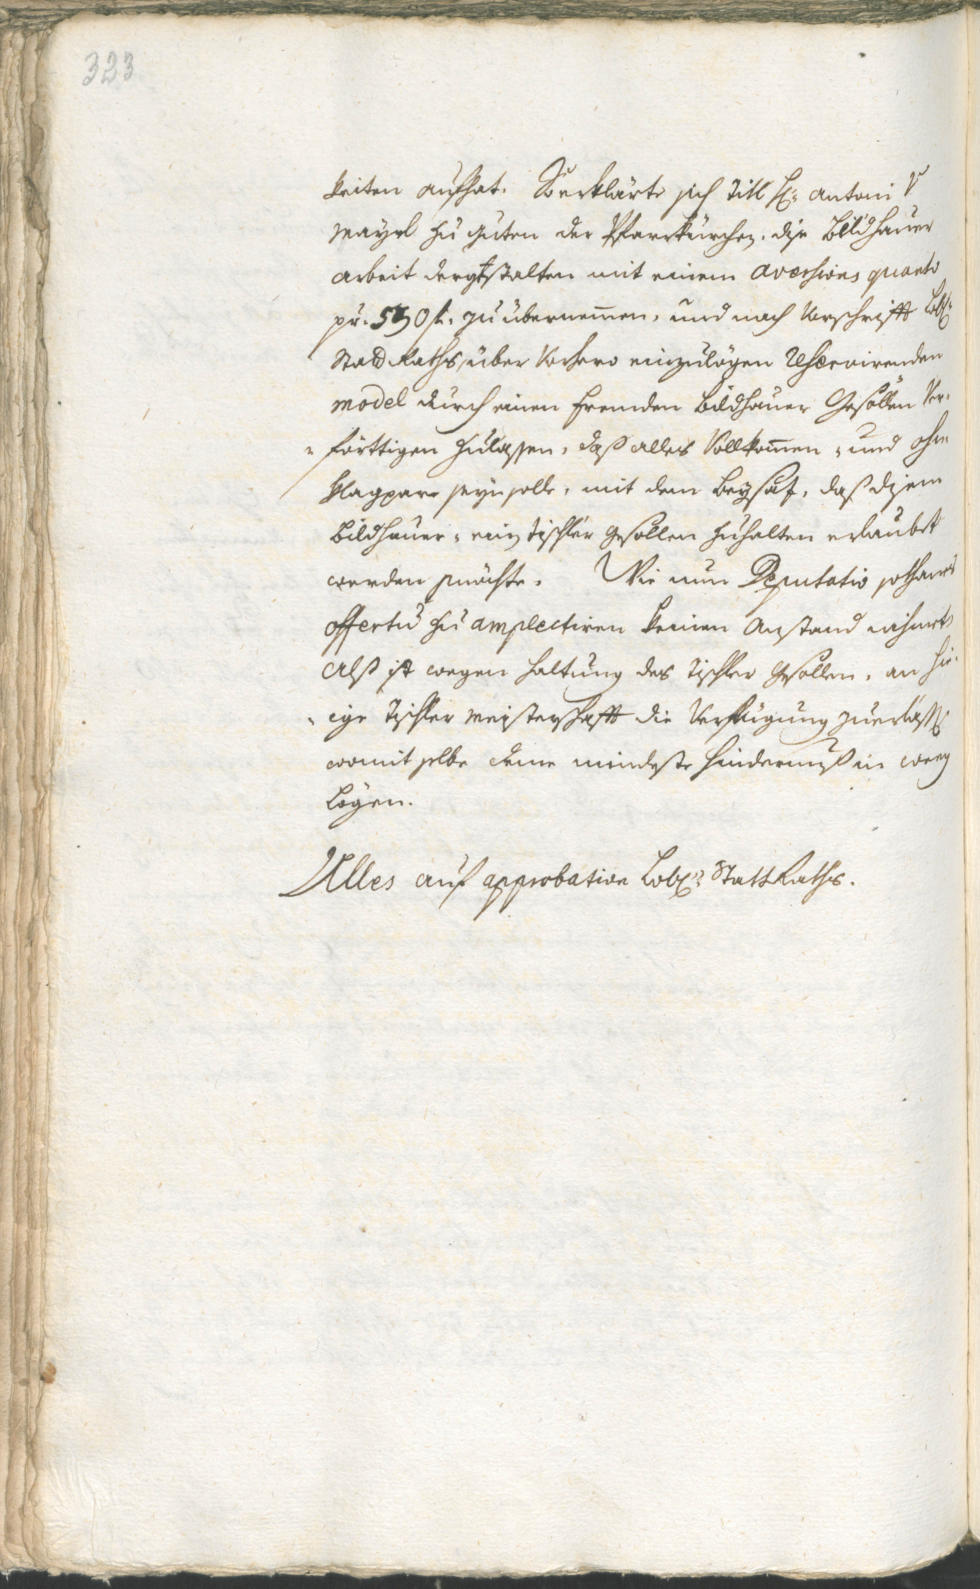 323
keiten aufhat. So erklärte sich Titl H: Antoni V
Mayrl zu guten der Pfarrkürchen, dise Bildhauer
arbeit dergestalten mit einem aversions quanto
pr. 550 f. zu übernemen, und nach Vorschrifft Lobl:
Stadt Raths, über Vorhero einzulögen
model durch einen frembden Bildhauer Gesöllen Ver-
-förttigen zulassen, daß alles Vollkomen, und ohne
klagpare seyn solle, mit dem beysaz, daß disem
Bildhauer, ein Tischler gesöllen zuhalten erlaubet
werden möchte. Wie nun Deputatio sothanes
offertum zu amplectiren keinen Anstand nihmet,
Alß ist wegen haltung des Tischler gesöllen, an hie-
-sige Tischler Meisterschafft die Verfügung zuerlassen
womit selbe deme mindeste hindernuß in weeg
lögen.
Alles auf approbation Lobl: Statt Raths.